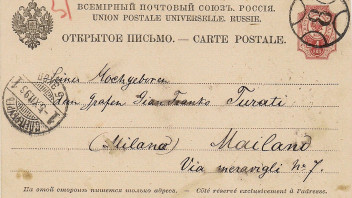 ВСЕМІРНЫЙ ПОЧТОВЫЙ СОЮЗЪ. РОССІЯ.
UNION POSTALE UNIVERSELLE. RUSSIE.
ОТКРЫТОЕ ПИСЬМО. — CARTE POSTALE.
Seiner Hochgeboren
den Grafen Gian Franks Turati
(Milano) Mailand
Via meravigli No 7.
На этой сторонѣ пишется только адресъ. Côté réservé exclusivement à l'adresse.